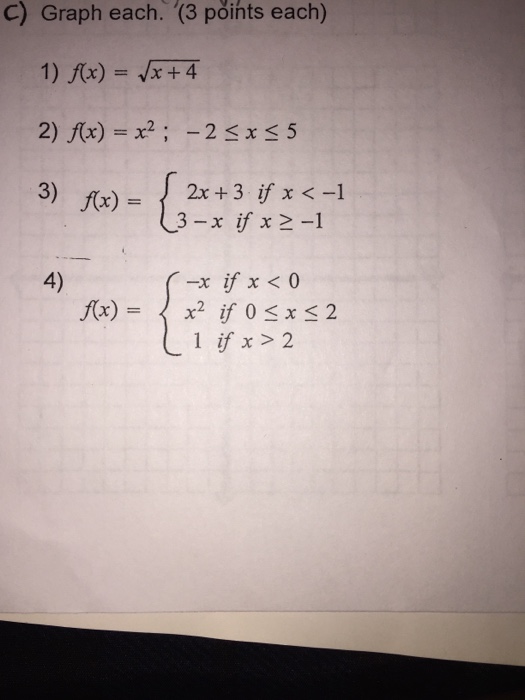 C) Graph each. (3 points each)
1) f(x) = √x + 4
2) f(x) = x² ; – 2 ≤ x ≤ 5
3) f(x) = { 2x + 3 if x < –1
3 – x if x ≥ –1
4) f(x) = { –x if x < 0
x² if 0 ≤ x ≤ 2
1 if x > 2